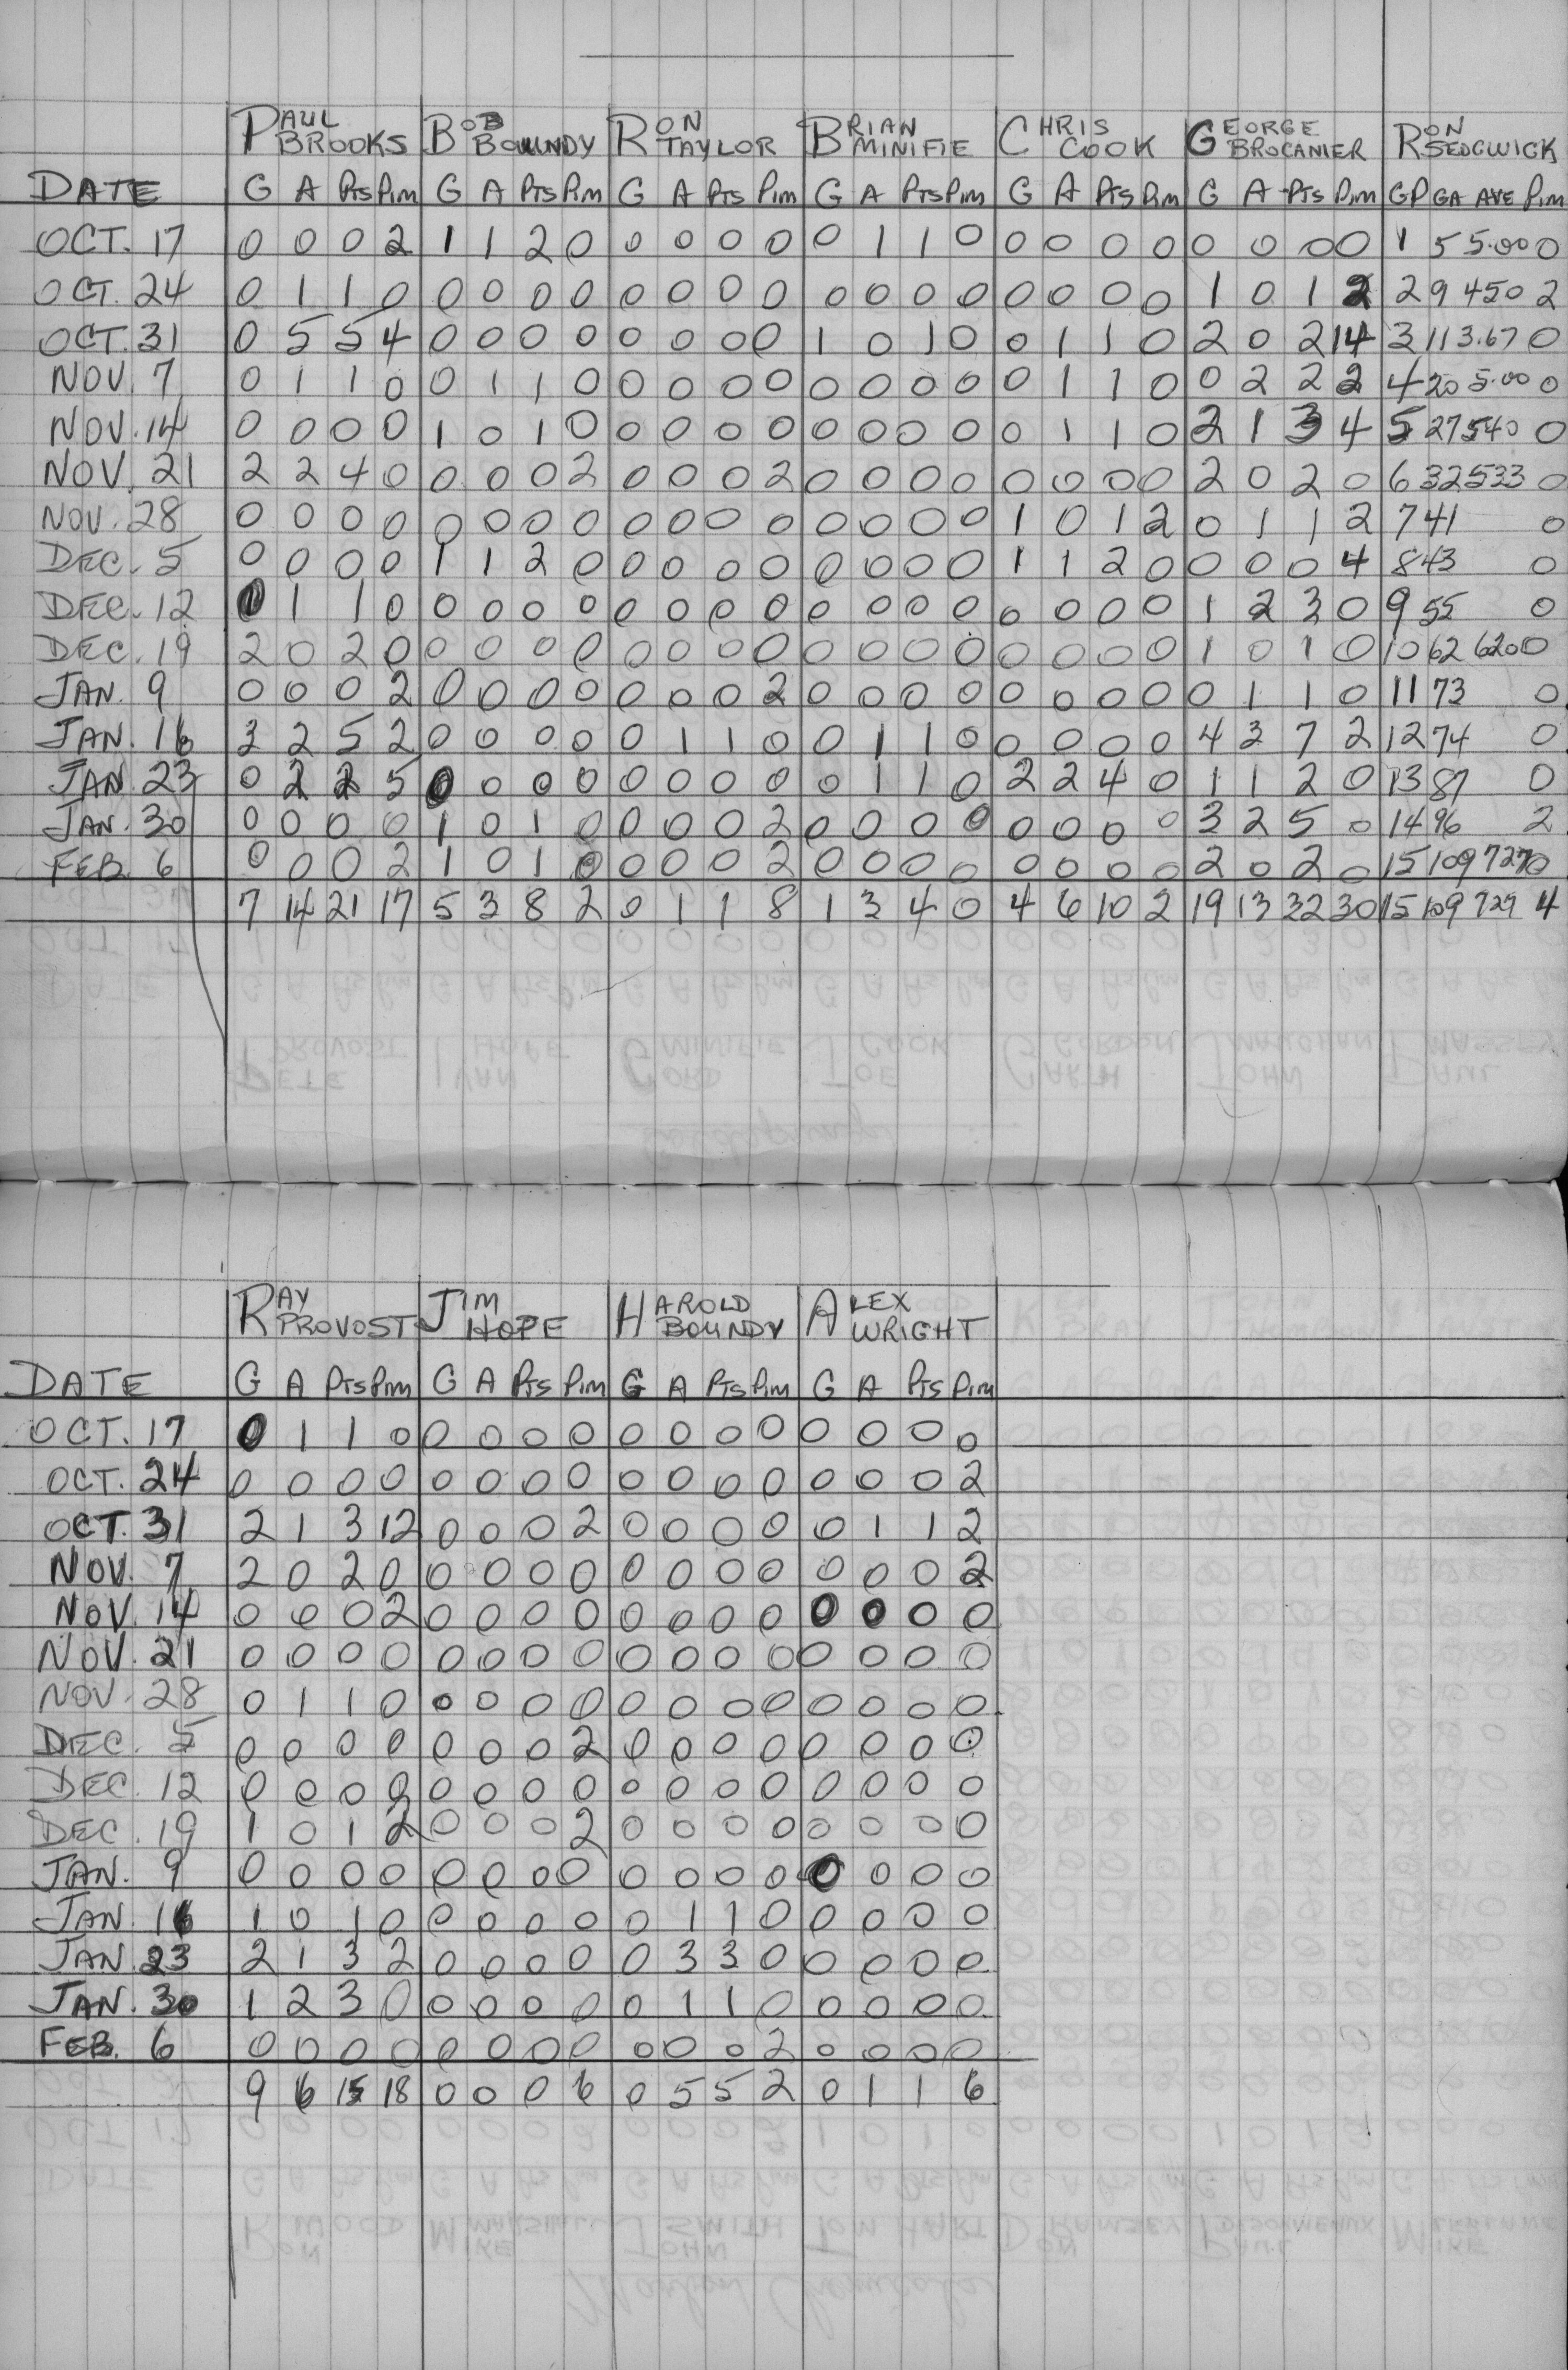 PAUL BROOKS BOB BOUNDY RON TAYLOR BRIAN MINIFIE CHRIS COOK GEORGE BROCANIER RON SEDGWICK
DATE G A Pts Pim G A Pts Pim G A Pts Pim G A Pts Pim G A Pts Pim G A Pts Pim GP GA AVE Pim
OCT. 17 0 0 0 2 1 1 2 0 0 0 0 0 0 1 1 0 0 0 0 0 0 0 0 0 1 5 5.00 0
OCT. 24 0 1 1 0 0 0 0 0 0 0 0 0 0 0 0 0 0 0 0 0 1 0 1 2 2 9 450 2
OCT. 31 0 5 5 4 0 0 0 0 0 0 0 0 1 0 1 0 0 1 1 0 2 0 2 14 3 11 3.67 0
NOV. 7 0 1 1 0 0 1 1 0 0 0 0 0 0 0 0 0 0 1 1 0 0 2 2 2 4 20 5.00 0
NOV. 14 0 0 0 0 1 0 1 0 0 0 0 0 0 0 0 0 0 1 1 0 2 1 3 4 5 27 540 0
NOV. 21 2 2 4 0 0 0 0 2 0 0 0 2 0 0 0 0 0 0 0 0 2 0 2 0 6 32 533 0
NOV. 28 0 0 0 0 0 0 0 0 0 0 0 0 0 0 0 0 1 0 1 2 0 1 1 2 7 41 0
DEC. 5 0 0 0 0 1 1 2 0 0 0 0 0 0 0 0 0 1 1 2 0 0 0 0 4 8 43 0
DEC. 12 0 1 1 0 0 0 0 0 0 0 0 0 0 0 0 0 0 0 0 0 1 2 3 0 9 55 0
DEC. 19 2 0 2 0 0 0 0 0 0 0 0 0 0 0 0 0 0 0 0 0 1 0 1 0 10 62 620 0
JAN. 9 0 0 0 2 0 0 0 0 0 0 0 2 0 0 0 0 0 0 0 0 0 1 1 0 11 73 0
JAN. 16 3 2 5 2 0 0 0 0 0 1 1 0 0 1 1 0 0 0 0 0 4 3 7 2 12 74 0
JAN. 23 0 2 2 5 0 0 0 0 0 0 0 0 0 1 1 0 2 2 4 0 1 1 2 0 13 87 0
JAN. 30 0 0 0 0 1 0 1 0 0 0 0 2 0 0 0 0 0 0 0 0 3 2 5 0 14 96 2
FEB. 6 0 0 0 2 1 0 1 0 0 0 0 2 0 0 0 0 0 0 0 0 2 0 2 0 15 109 727 0
7 14 21 17 5 3 8 2 0 1 1 8 1 3 4 0 4 6 10 2 19 13 32 30 15 109 727 4
RAY PROVOST JIM HOPE HAROLD BOUNDY ALEX WRIGHT
DATE G A Pts Pim G A Pts Pim G A Pts Pim G A Pts Pim
OCT. 17 0 1 1 0 0 0 0 0 0 0 0 0 0 0 0 0
OCT. 24 0 0 0 0 0 0 0 0 0 0 0 0 0 0 0 2
OCT. 31 2 1 3 12 0 0 0 2 0 0 0 0 0 1 1 2
NOV. 7 2 0 2 0 0 0 0 0 0 0 0 0 0 0 0 2
NOV. 14 0 0 0 2 0 0 0 0 0 0 0 0 0 0 0 0
NOV. 21 0 0 0 0 0 0 0 0 0 0 0 0 0 0 0 0
NOV. 28 0 1 1 0 0 0 0 0 0 0 0 0 0 0 0 0
DEC. 5 0 0 0 0 0 0 0 2 0 0 0 0 0 0 0 0
DEC. 12 0 0 0 0 0 0 0 0 0 0 0 0 0 0 0 0
DEC. 19 1 0 1 2 0 0 0 2 0 0 0 0 0 0 0 0
JAN. 9 0 0 0 0 0 0 0 0 0 0 0 0 0 0 0 0
JAN. 16 1 0 1 0 0 0 0 0 0 1 1 0 0 0 0 0
JAN. 23 2 1 3 2 0 0 0 0 0 3 3 0 0 0 0 0
JAN. 30 1 2 3 0 0 0 0 0 0 1 1 0 0 0 0 0
FEB. 6 0 0 0 0 0 0 0 0 0 0 0 2 0 0 0 0
9 6 15 18 0 0 0 6 0 5 5 2 0 1 1 6